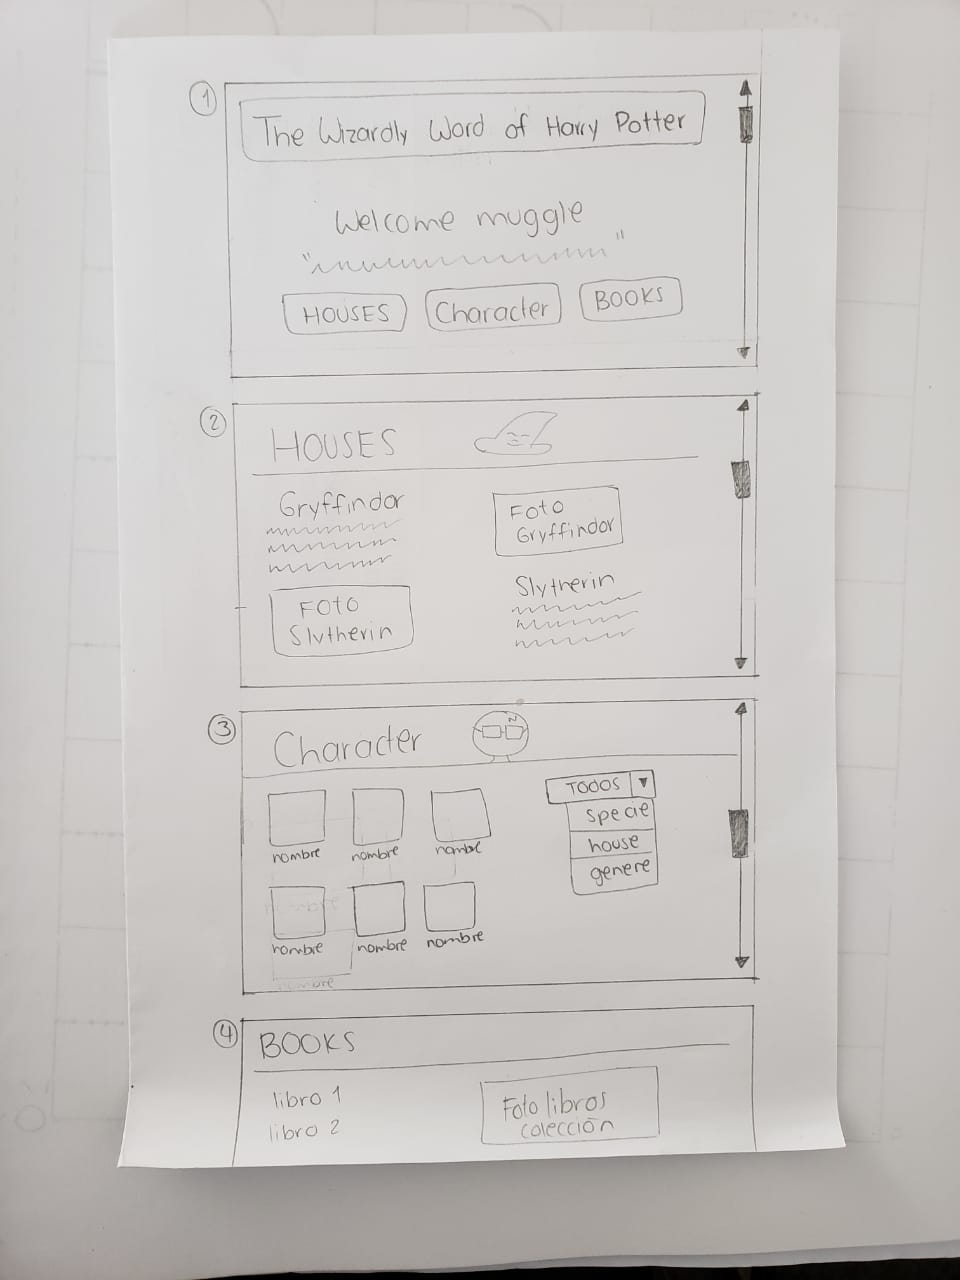 1
The Wizardly Word of Harry Potter
Welcome muggle
HOUSES Character BOOKS
2
HOUSES
Gryffindor
Foto
Gryffindor
Foto
Slytherin
Slytherin
3
Character
nombre nombre nombre
nombre nombre nombre
TODOS
specie
house
genere
4
BOOKS
libro 1
libro 2
Foto libros
colección